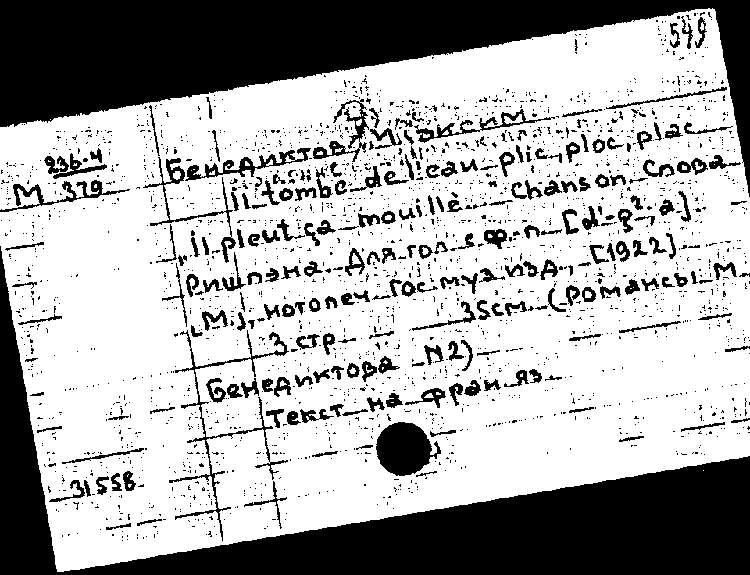 549
236-4
М 379
Бенедиктов, Максим.
il tombe de l'eau plic, ploc, plac
„il pleut ça mouillè" Chanson Слова
Ришпэна. Для гол. с ф.-п. [d'-g², a].
[М.], нотопеч. Госмузизд., [1922]
3 стр. 35см. (Романсы М.
Бенедиктова N2)
Текст на фран яз
31558